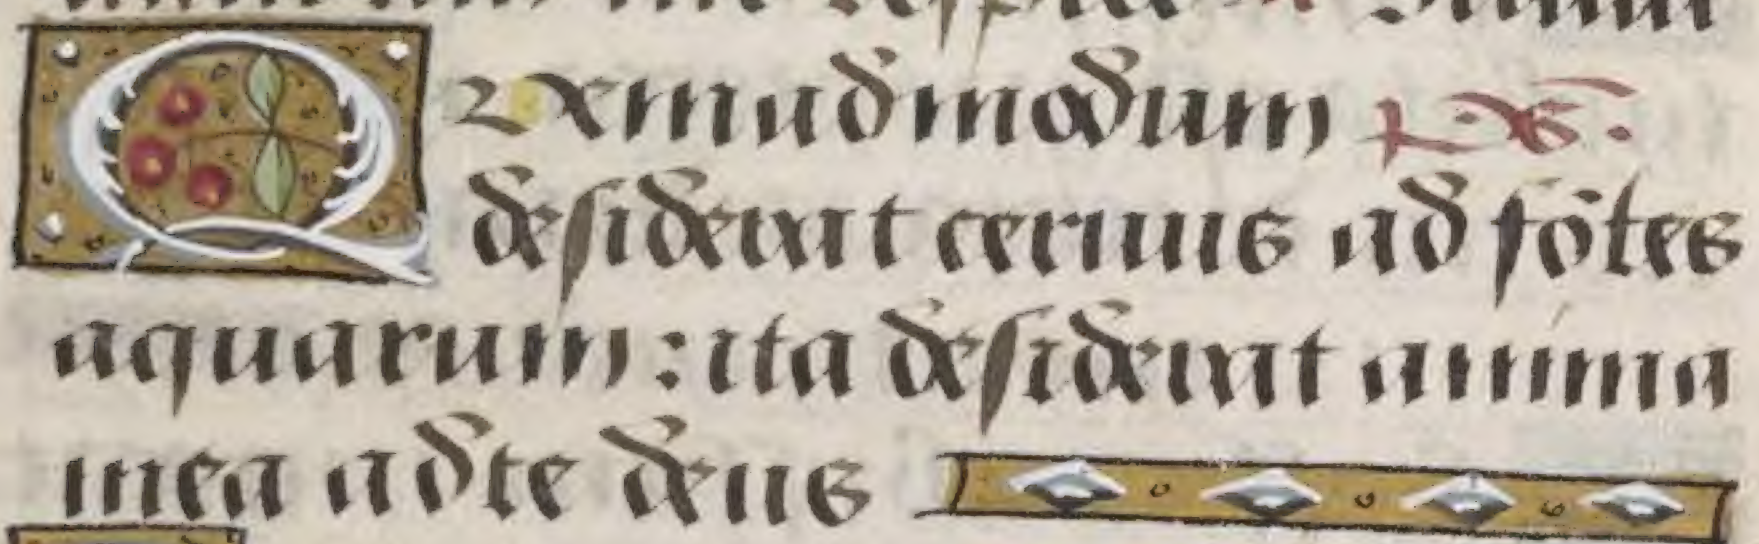 Vexmadmodum ps.
desiderat ceruus ad fōtes
aquarum: ita desiderat anima
mea ad te deus